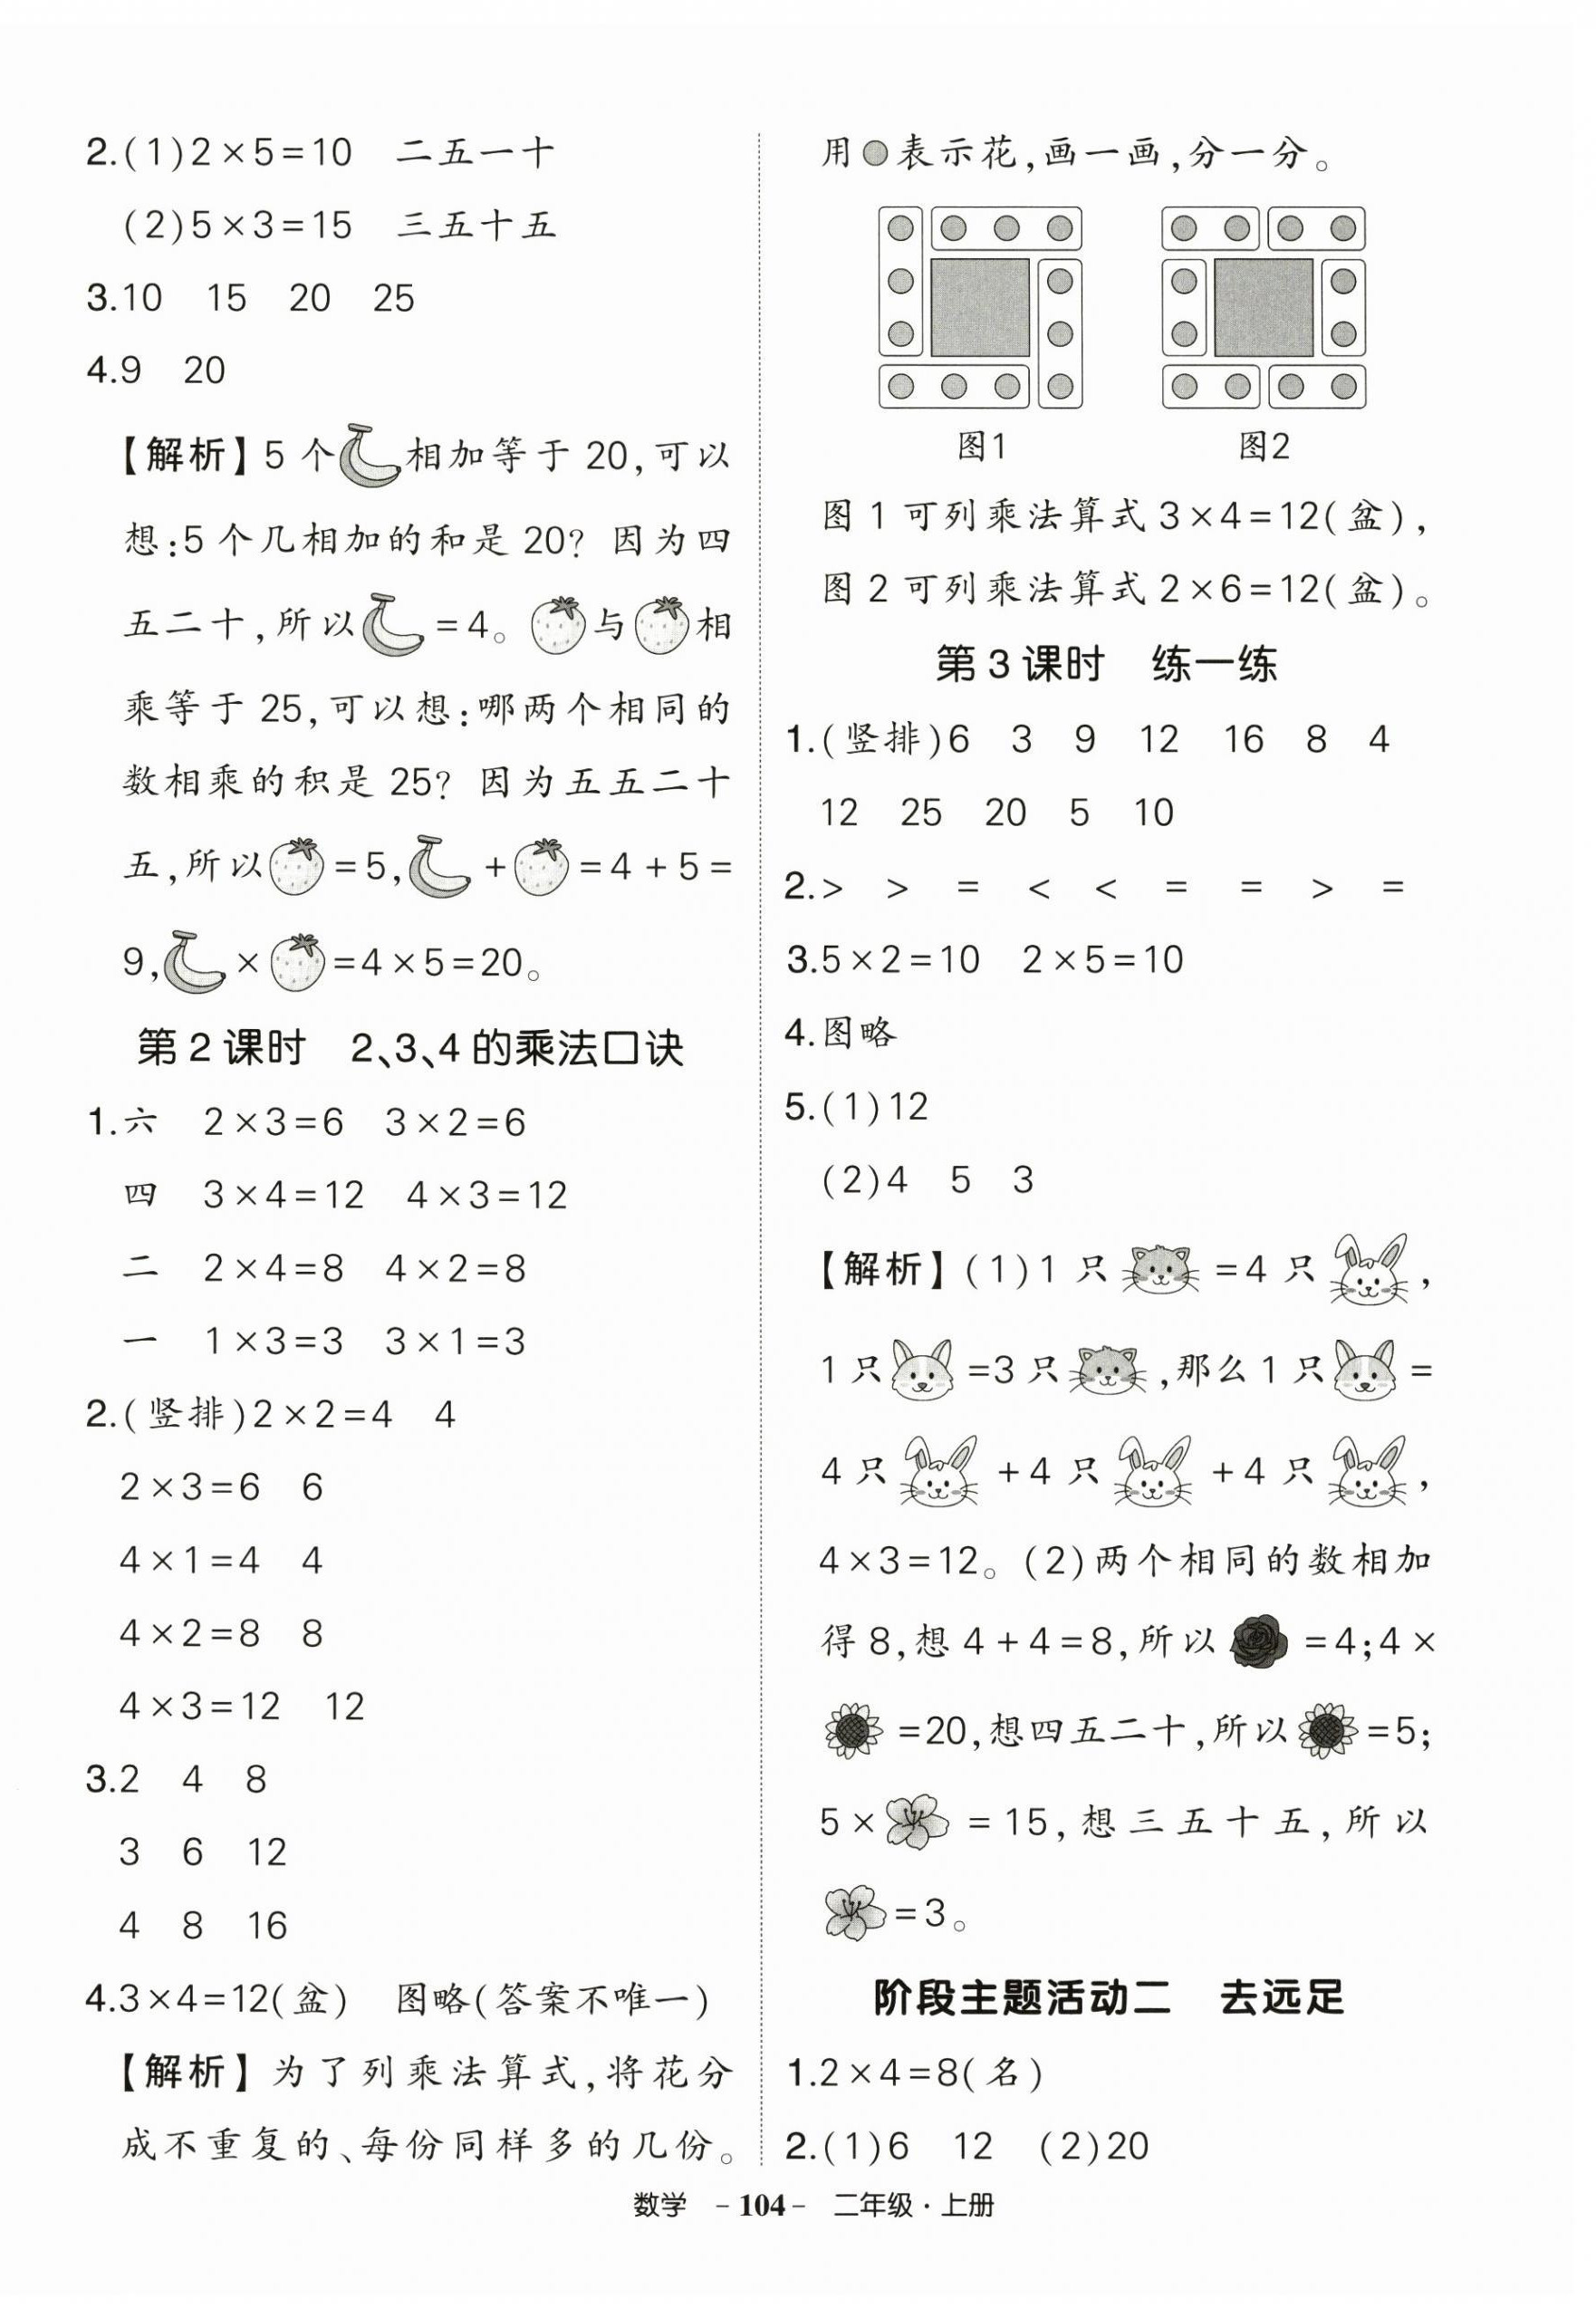 2.(1)2×5=10　二五一十
(2)5×3=15　三五十五
3.10　15　20　25
4.9　20
【解析】5个相加等于20,可以
想:5个几相加的和是20? 因为四
五二十,所以=4。与相
乘等于25,可以想:哪两个相同的
数相乘的积是25? 因为五五二十
五,所以=5,+=4+5=
9,×=4×5=20。
第2课时　2、3、4的乘法口诀
1.六　2×3=6　3×2=6
四　3×4=12　4×3=12
二　2×4=8　4×2=8
一　1×3=3　3×1=3
2.(竖排)2×2=4　4
2×3=6　6
4×1=4　4
4×2=8　8
4×3=12　12
3.2　4　8
3　6　12
4　8　16
4.3×4=12(盆)　图略(答案不唯一)
【解析】为了列乘法算式,将花分
成不重复的、每份同样多的几份。
用表示花,画一画,分一分。
图1　图2
图1可列乘法算式3×4=12(盆),
图2可列乘法算式2×6=12(盆)。
第3课时　练一练
1.(竖排)6　3　9　12　16　8　4
12　25　20　5　10
2.>　>　=　<　<　=　=　>　=
3.5×2=10　2×5=10
4.图略
5.(1)12
(2)4　5　3
【解析】(1)1只=4只,
1只=3只,那么1只=
4只+4只+4只,
4×3=12。(2)两个相同的数相加
得8,想4+4=8,所以=4;4×
=20,想四五二十,所以=5;
5×=15,想三五十五,所以
=3。
阶段主题活动二　去远足
1.2×4=8(名)
2.(1)6　12　(2)20
数学　-104-　二年级·上册